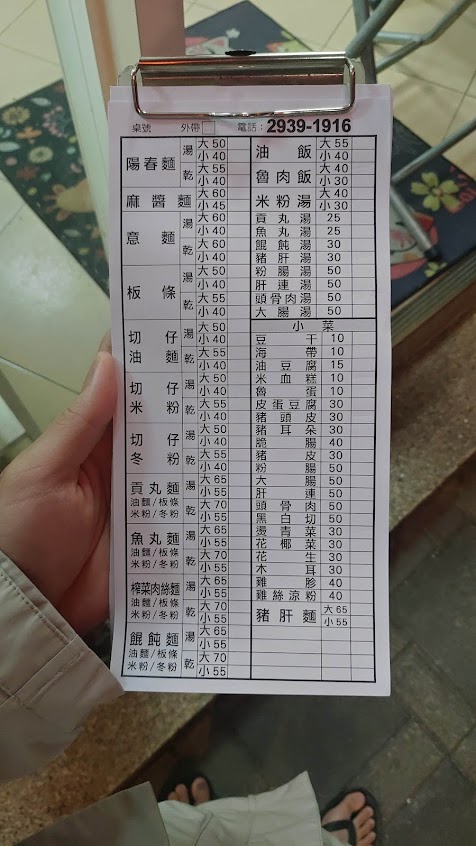 桌號 外帶 電話：2939-1916
陽春麵 湯 大 50
小 40
乾 大 55
小 40
麻醬麵 大 60
小 45
意麵 湯 大 60
小 40
乾 大 60
小 40
板條 湯 大 50
小 40
乾 大 55
小 40
切仔油麵 湯 大 50
小 40
乾 大 55
小 40
切仔米粉 湯 大 50
小 40
乾 大 55
小 40
切仔冬粉 湯 大 50
小 40
乾 大 55
小 40
貢丸麵 湯 大 65
小 55
油麵/板條
米粉/冬粉 乾 大 70
小 55
魚丸麵 湯 大 65
小 55
油麵/板條
米粉/冬粉 乾 大 70
小 55
榨菜肉絲麵 湯 大 65
小 55
油麵/板條
米粉/冬粉 乾 大 70
小 55
餛飩麵 湯 大 65
小 55
油麵/板條
米粉/冬粉 乾 大 70
小 55
油飯 大 55
小 40
魯肉飯 大 40
小 30
米粉湯 大 40
小 30
貢丸湯 25
魚丸湯 25
餛飩湯 30
豬肝湯 30
粉腸湯 50
肝連湯 50
頭骨肉湯 50
大腸湯 50
小菜
豆干 10
海帶 10
油豆腐 15
米血糕 10
魯蛋 10
皮蛋豆腐 30
豬頭皮 30
豬耳朵 30
脆腸 40
豬皮 30
粉腸 50
大腸 50
肝連 50
頭骨肉 50
黑白切 50
燙青菜 30
花椰菜 30
花生 30
木耳 30
雞胗 40
雞絲涼粉 40
豬肝麵 大 65
小 55